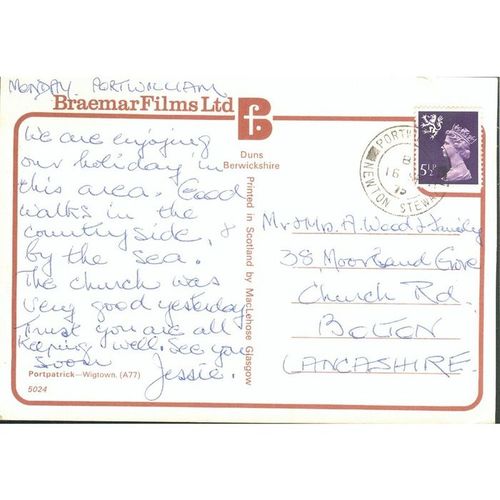 MONDAY. PORTWILLIAM.
Braemar Films Ltd
Bf.
Duns
Berwickshire
We are enjoying
our holiday in
this area. Good
walks in the
countryside, &
by the sea.
The church was
very good yesterday
Trust you are all
keeping well. See you
soon
Jessie.
Portpatrick—Wigtown. (A77)
5024
Printed in Scotland by MacLehose Glasgow
PORTW
NEWTON STEWA
16
5½P
Mr & Mrs. A. Wood & Family
38, Moorland Grove
Church Rd.
BOLTON
LANCASHIRE.